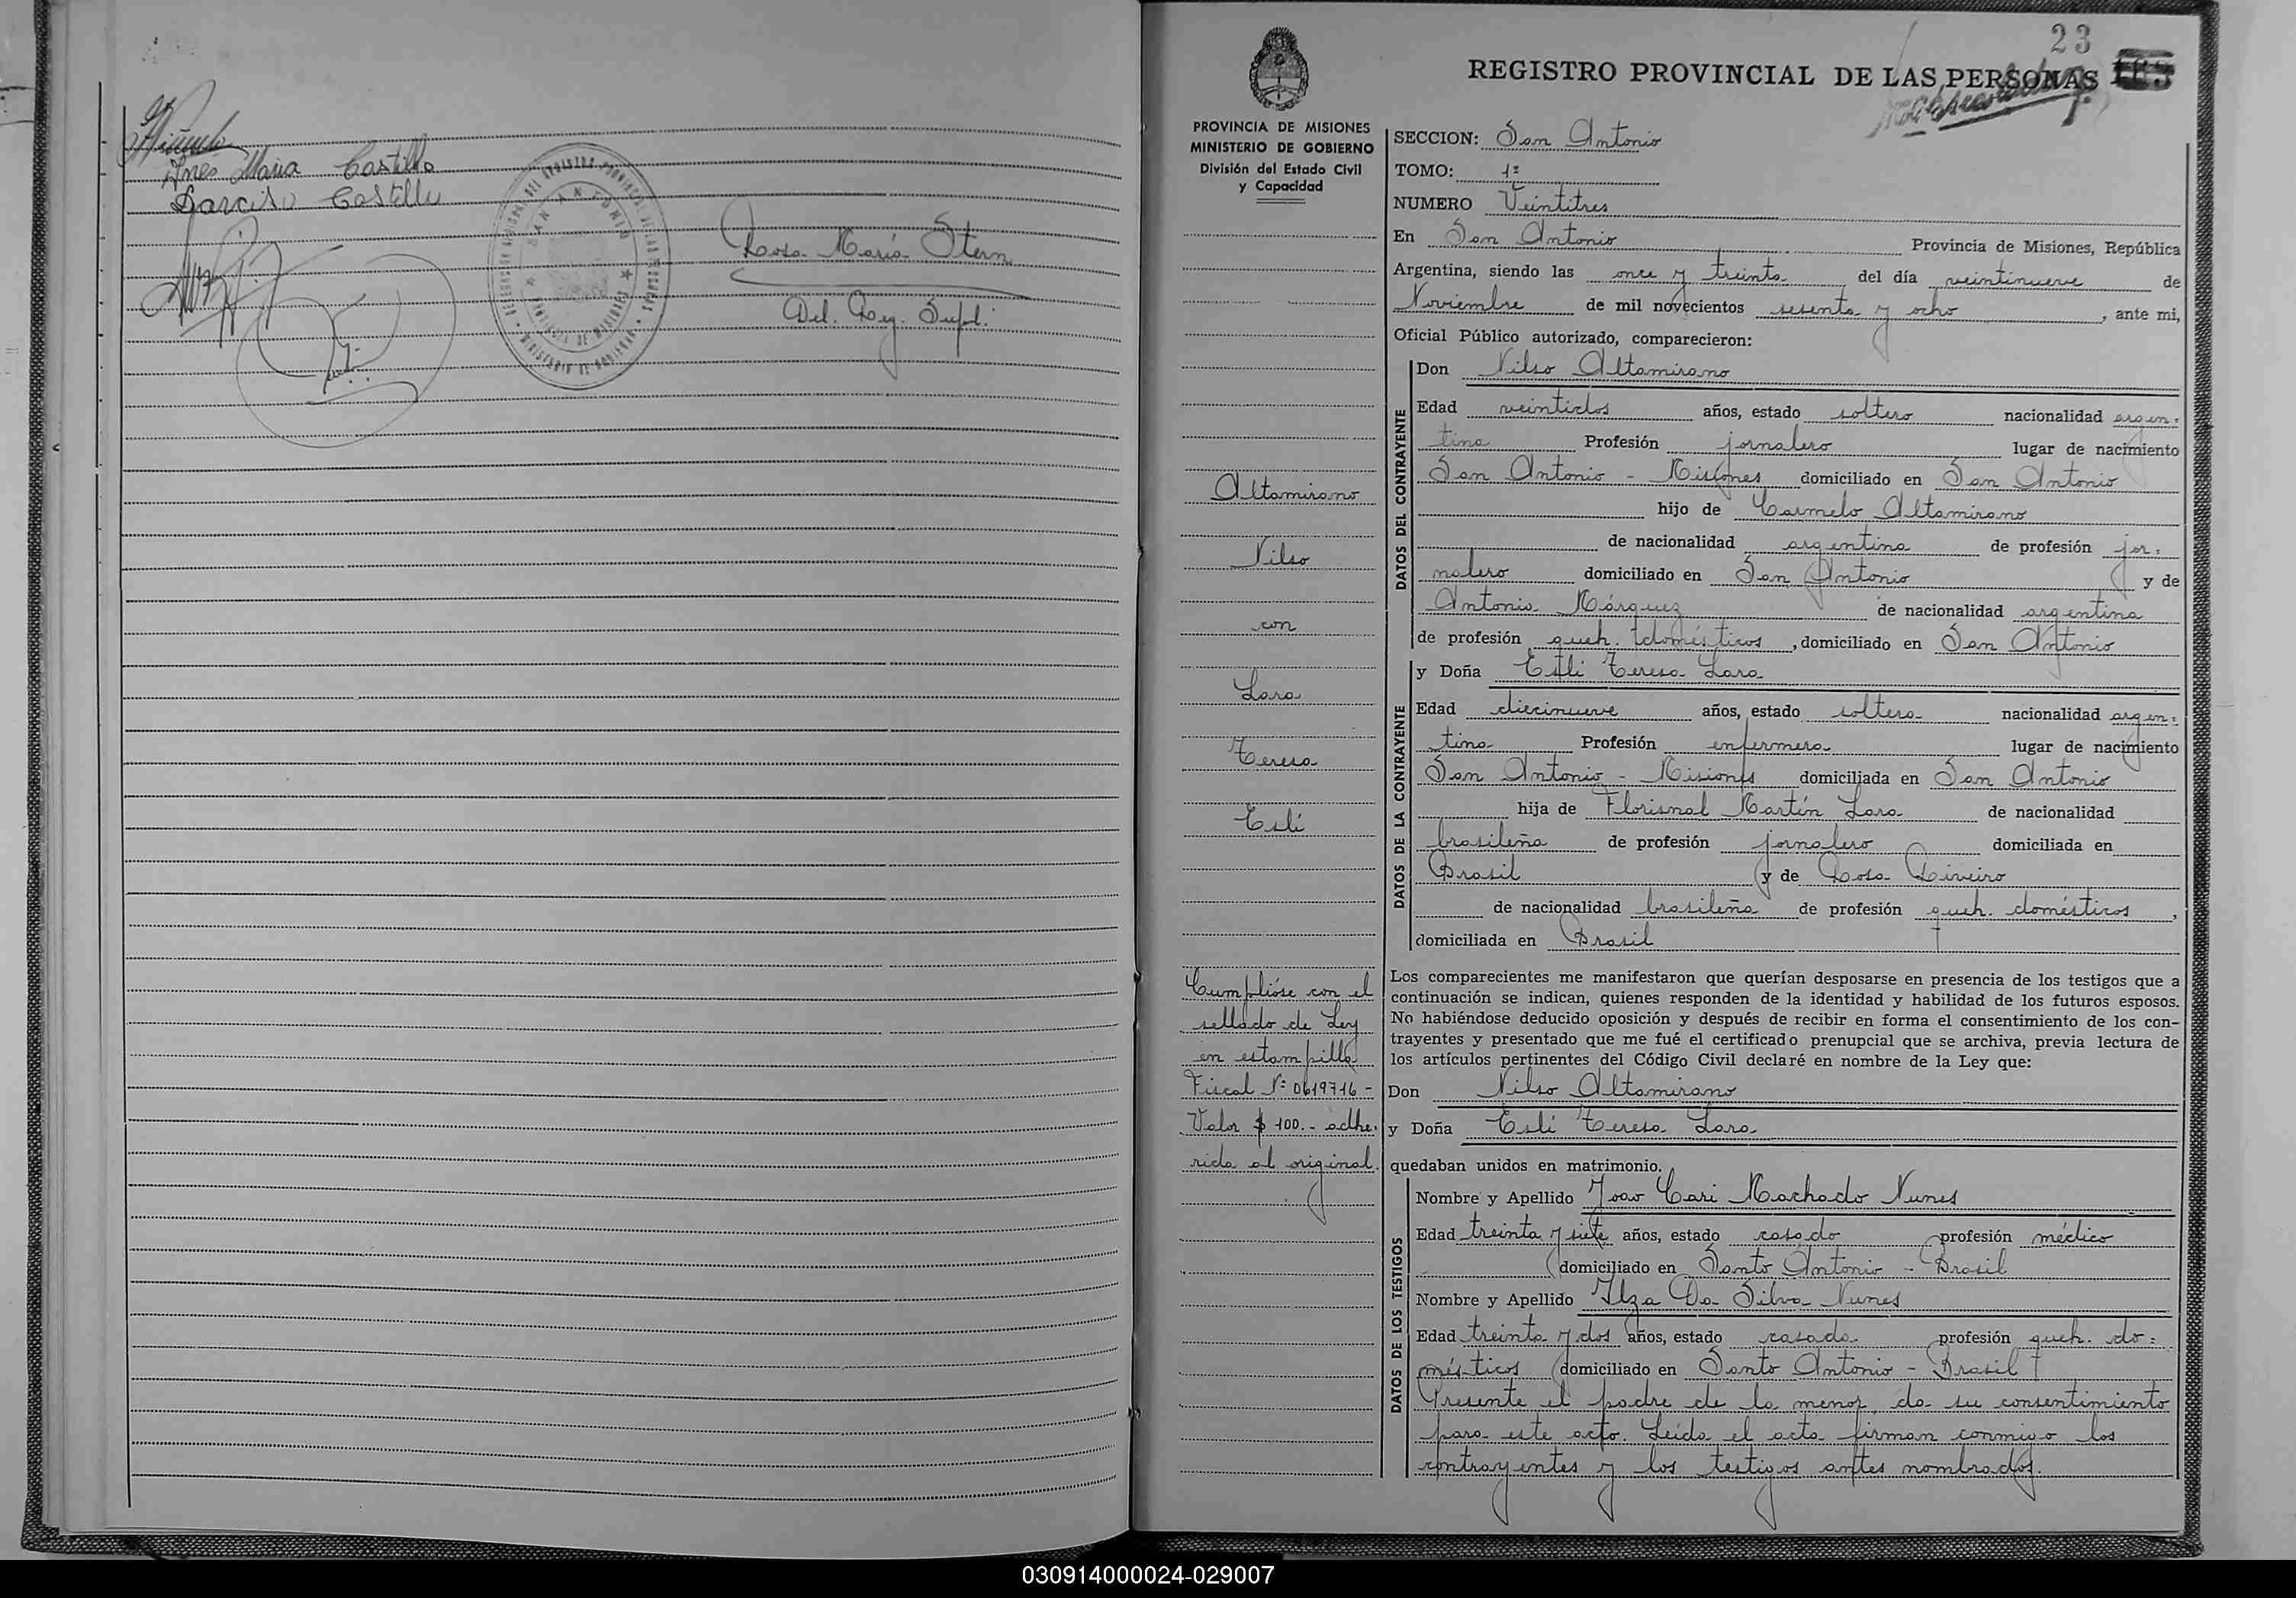 Inés Maria Castillo
Narciso Castillo
SAN ANTONIO
Rosa María Stern
Del. Reg. Supl.
23
REGISTRO PROVINCIAL DE LAS PERSONAS
PROVINCIA DE MISIONES
MINISTERIO DE GOBIERNO
División del Estado Civil
y Capacidad
Altamirano
Nilso
con
Lara
Teresa
Eslí
Cumplióse con el
sellado de Ley
en estampilla
Fiscal Nº 0619716 -
Valor $ 100.- adhe-
rida al original.
SECCION: San Antonio
TOMO: 1º
NUMERO Veintitres
En San Antonio Provincia de Misiones, República
Argentina, siendo las once y treinta del día veintinueve de
Noviembre de mil novecientos sesenta y ocho, ante mi,
Oficial Público autorizado, comparecieron:
DATOS DEL CONTRAYENTE
Don Nilso Altamirano
Edad veintidos años, estado soltero nacionalidad argen-
tina Profesión jornalero lugar de nacimiento
San Antonio - Misiones domiciliado en San Antonio
hijo de Carmelo Altamirano
de nacionalidad argentina de profesión jor-
nalero domiciliado en San Antonio y de
Antonia Márquez de nacionalidad argentina
de profesión queh. domésticos, domiciliado en San Antonio
DATOS DE LA CONTRAYENTE
y Doña Eslí Teresa Lara
Edad diecinueve años, estado soltera nacionalidad argen-
tina Profesión enfermera lugar de nacimiento
San Antonio - Misiones domiciliada en San Antonio
hija de Florisnal Martín Lara de nacionalidad
brasileña de profesión jornalero domiciliada en
Brasil y de Rosa Riveiro
de nacionalidad brasileña de profesión queh. domésticos,
domiciliada en Brasil
Los comparecientes me manifestaron que querían desposarse en presencia de los testigos que a
continuación se indican, quienes responden de la identidad y habilidad de los futuros esposos.
No habiéndose deducido oposición y después de recibir en forma el consentimiento de los con-
trayentes y presentado que me fué el certificado prenupcial que se archiva, previa lectura de
los artículos pertinentes del Código Civil declaré en nombre de la Ley que:
Don Nilso Altamirano
y Doña Eslí Teresa Lara
quedaban unidos en matrimonio.
DATOS DE LOS TESTIGOS
Nombre y Apellido Joao Cari Machado Nunes
Edad treinta y siete años, estado casado profesión médico
domiciliado en Santo Antonio - Brasil
Nombre y Apellido Ilza Da Silva Nunes
Edad treinta y dos años, estado casada profesión queh. do-
mésticos domiciliado en Santo Antonio - Brasil
Presente el padre de la menor, da su consentimiento
para este acto. Leída el acta firman conmigo los
contrayentes y los testigos antes nombrados.
030914000024-029007